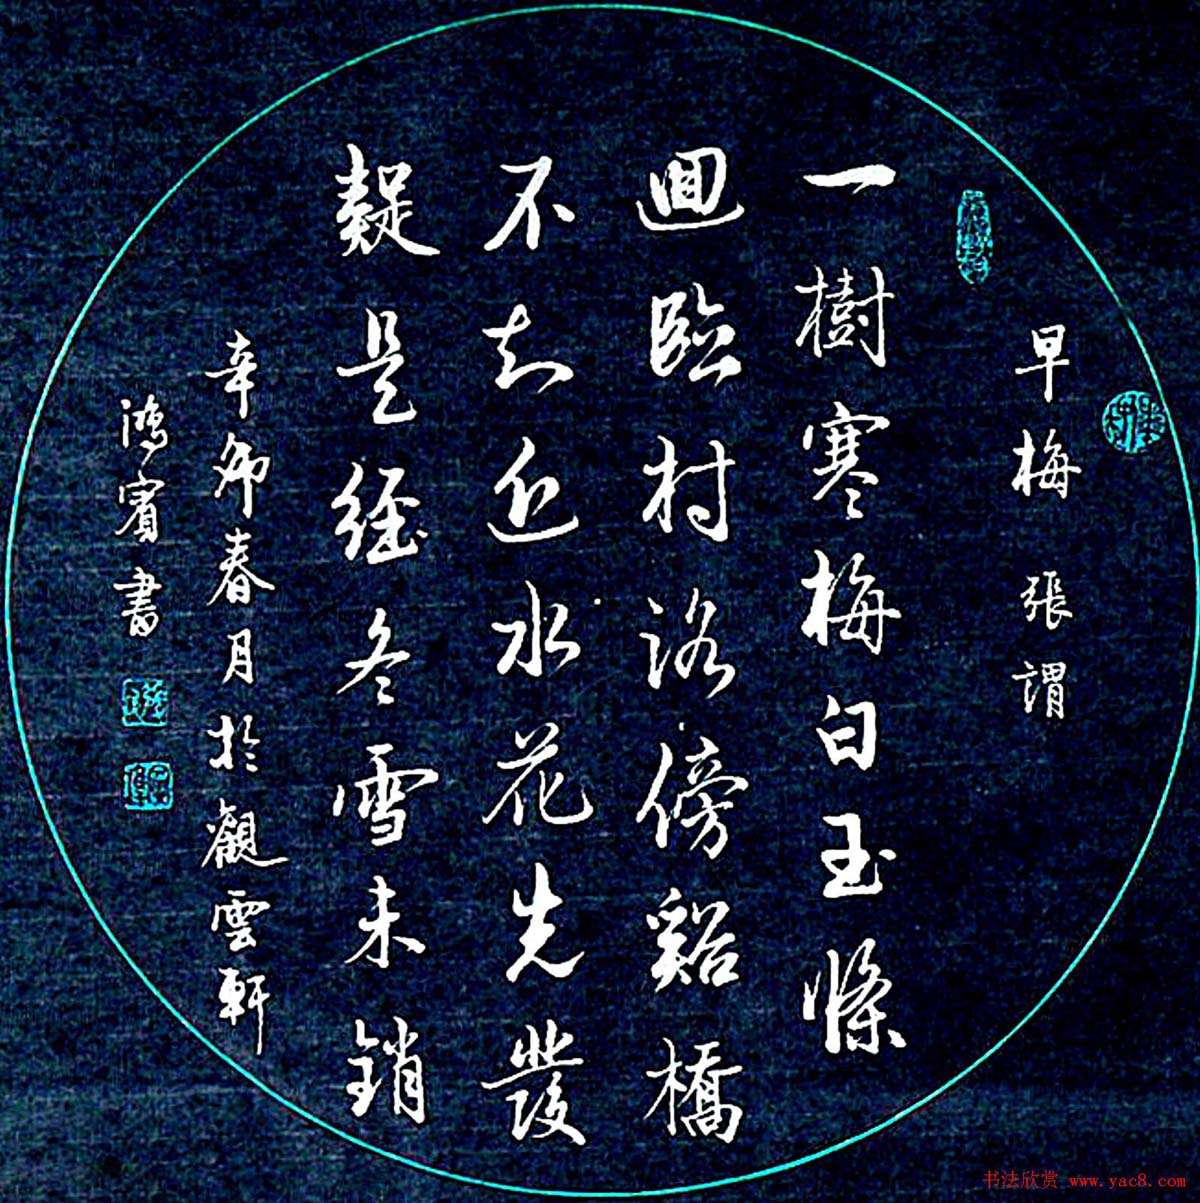 早梅 張謂
一樹寒梅白玉條
迴臨村洛傍谿橋
不知近水花先發
疑是經冬雪未銷
辛卯春月於觀雲軒
鴻賓書
书法欣赏 www.yac8.com